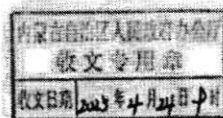 内蒙古自治区人民政府办公厅
收文专用章
收文日期 2023年4月24日 时